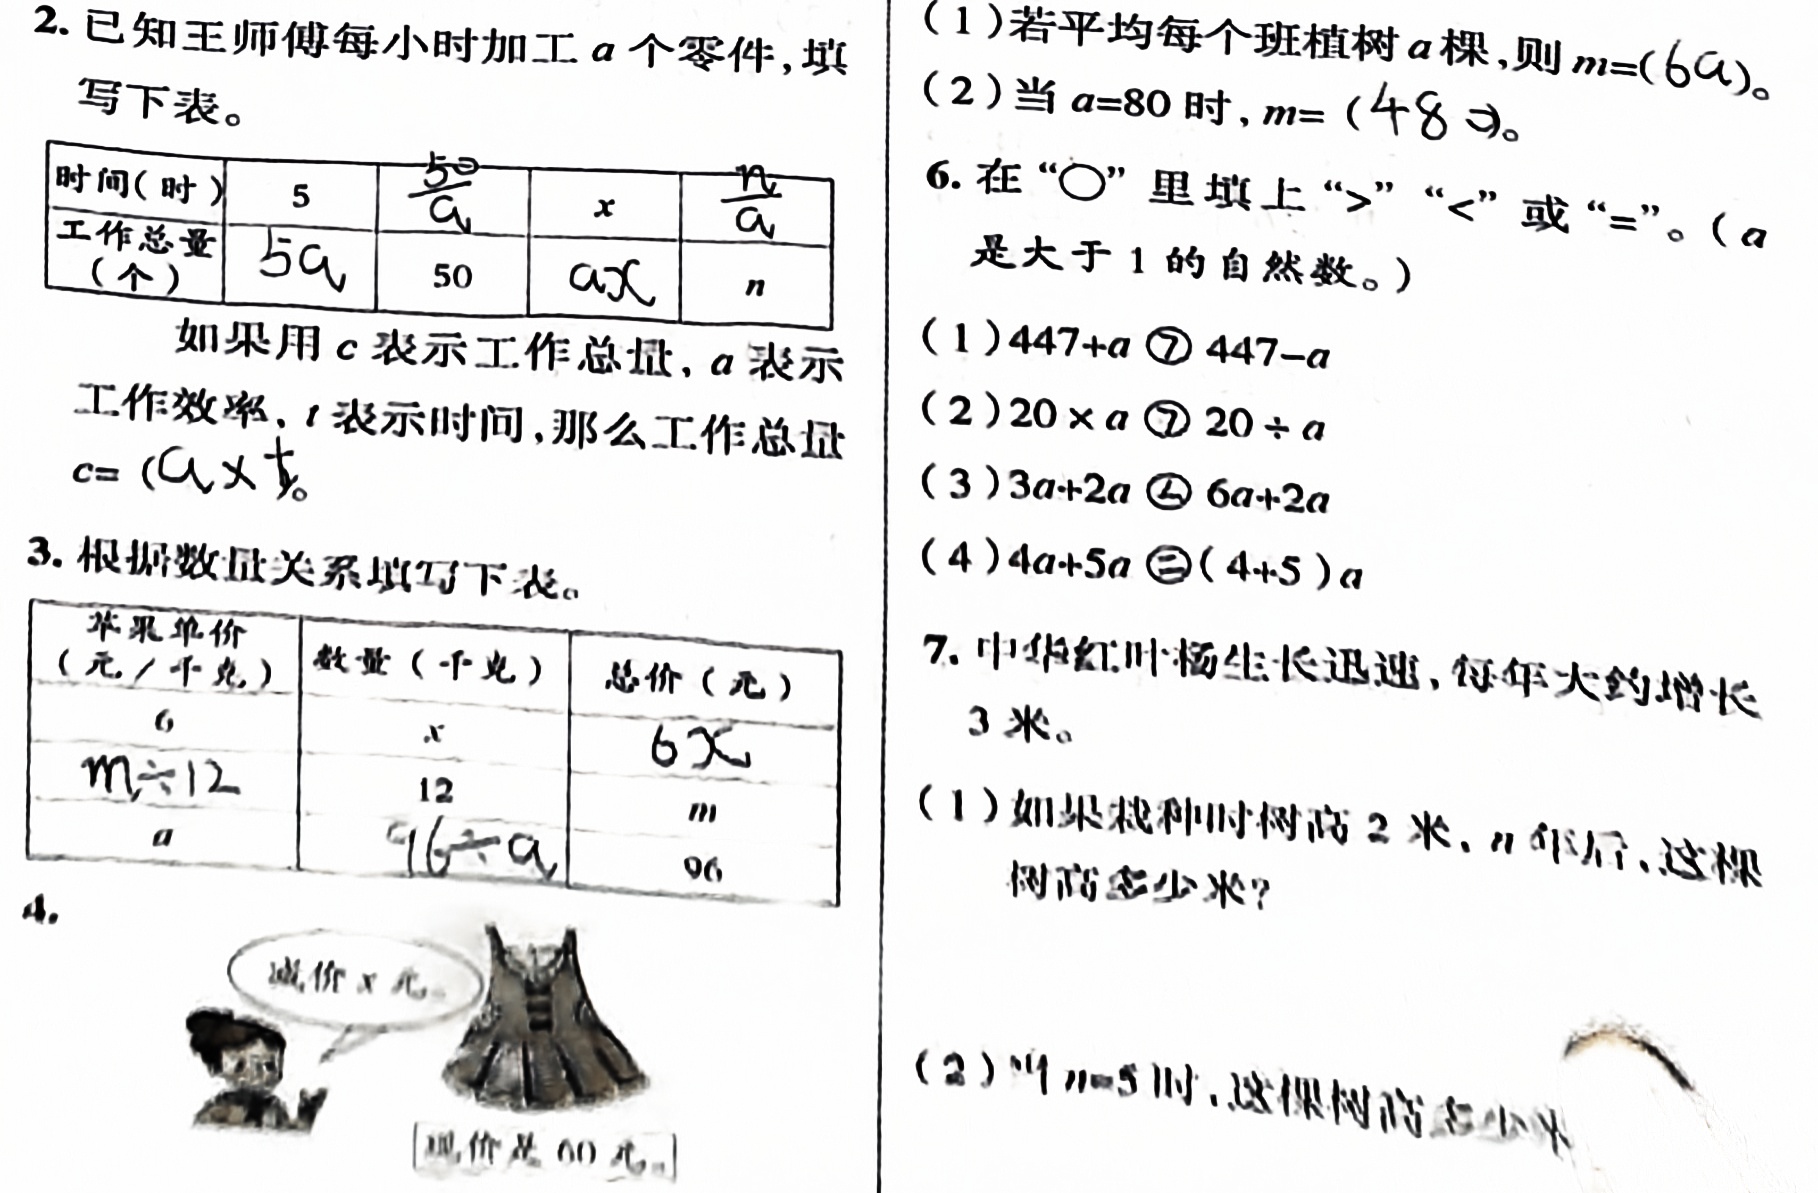 2. 已知王师傅每小时加工 a 个零件，填
写下表。
时间（时） 5 50/a x n/a
工作总量（个） 5a 50 ax n
如果用 c 表示工作总量，a 表示
工作效率，t 表示时间，那么工作总量
c=（a×t）。
3. 根据数量关系填写下表。
苹果单价（元/千克） 数量（千克） 总价（元）
6 x 6x
m÷12 12 m
a 96÷a 96
4.
减价 x 元。
现价是 60 元。
（1）若平均每个班植树 a 棵，则 m=（6a）。
（2）当 a=80 时，m=（480）。
6. 在“○”里填上“>”“<”或“=”。（a
是大于 1 的自然数。）
（1）447+a > 447-a
（2）20×a > 20÷a
（3）3a+2a < 6a+2a
（4）4a+5a =（4+5）a
7. 中华红叶杨生长迅速，每年大约增长
3 米。
（1）如果栽种时树高 2 米，n 年后，这棵
树高多少米？
（2）当 n=5 时，这棵树高多少米